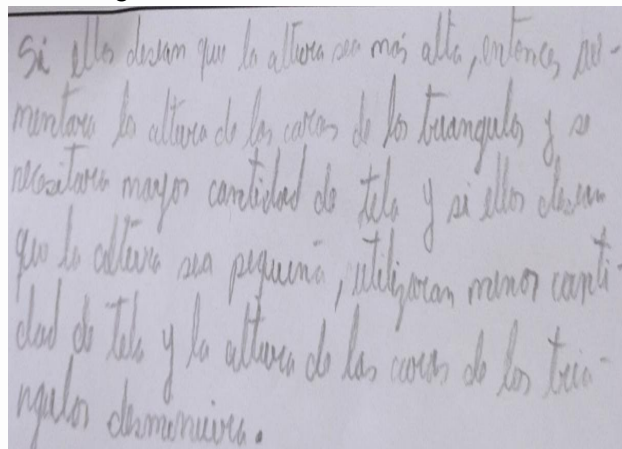 Si ellos desean que la altura sea más alta, entonces au-
mentara la altura de las caras de los triangulos y se
necesitara mayor cantidad de tela y si ellos desean
que la altura sea pequeña, utilizaran menor canti-
dad de tela y la altura de las caras de los tria-
ngulos desmenuira.